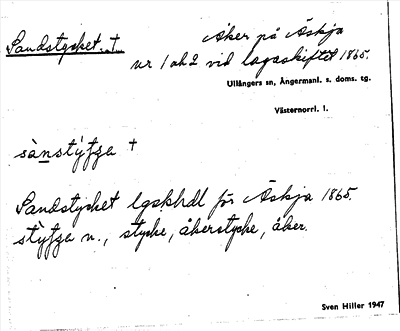 Sandstycket. †
Åker på Äskja
nr 1 och 2 vid lagaskiftet 1865.
Ullångers sn, Ångermanl. s. doms. tg.
Västernorrl. l.
sànstýfza †
Sandstycket lgskhdl för Äskja 1865.
stýfza n., stycke, åkerstycke, åker.
Sven Hiller 1947